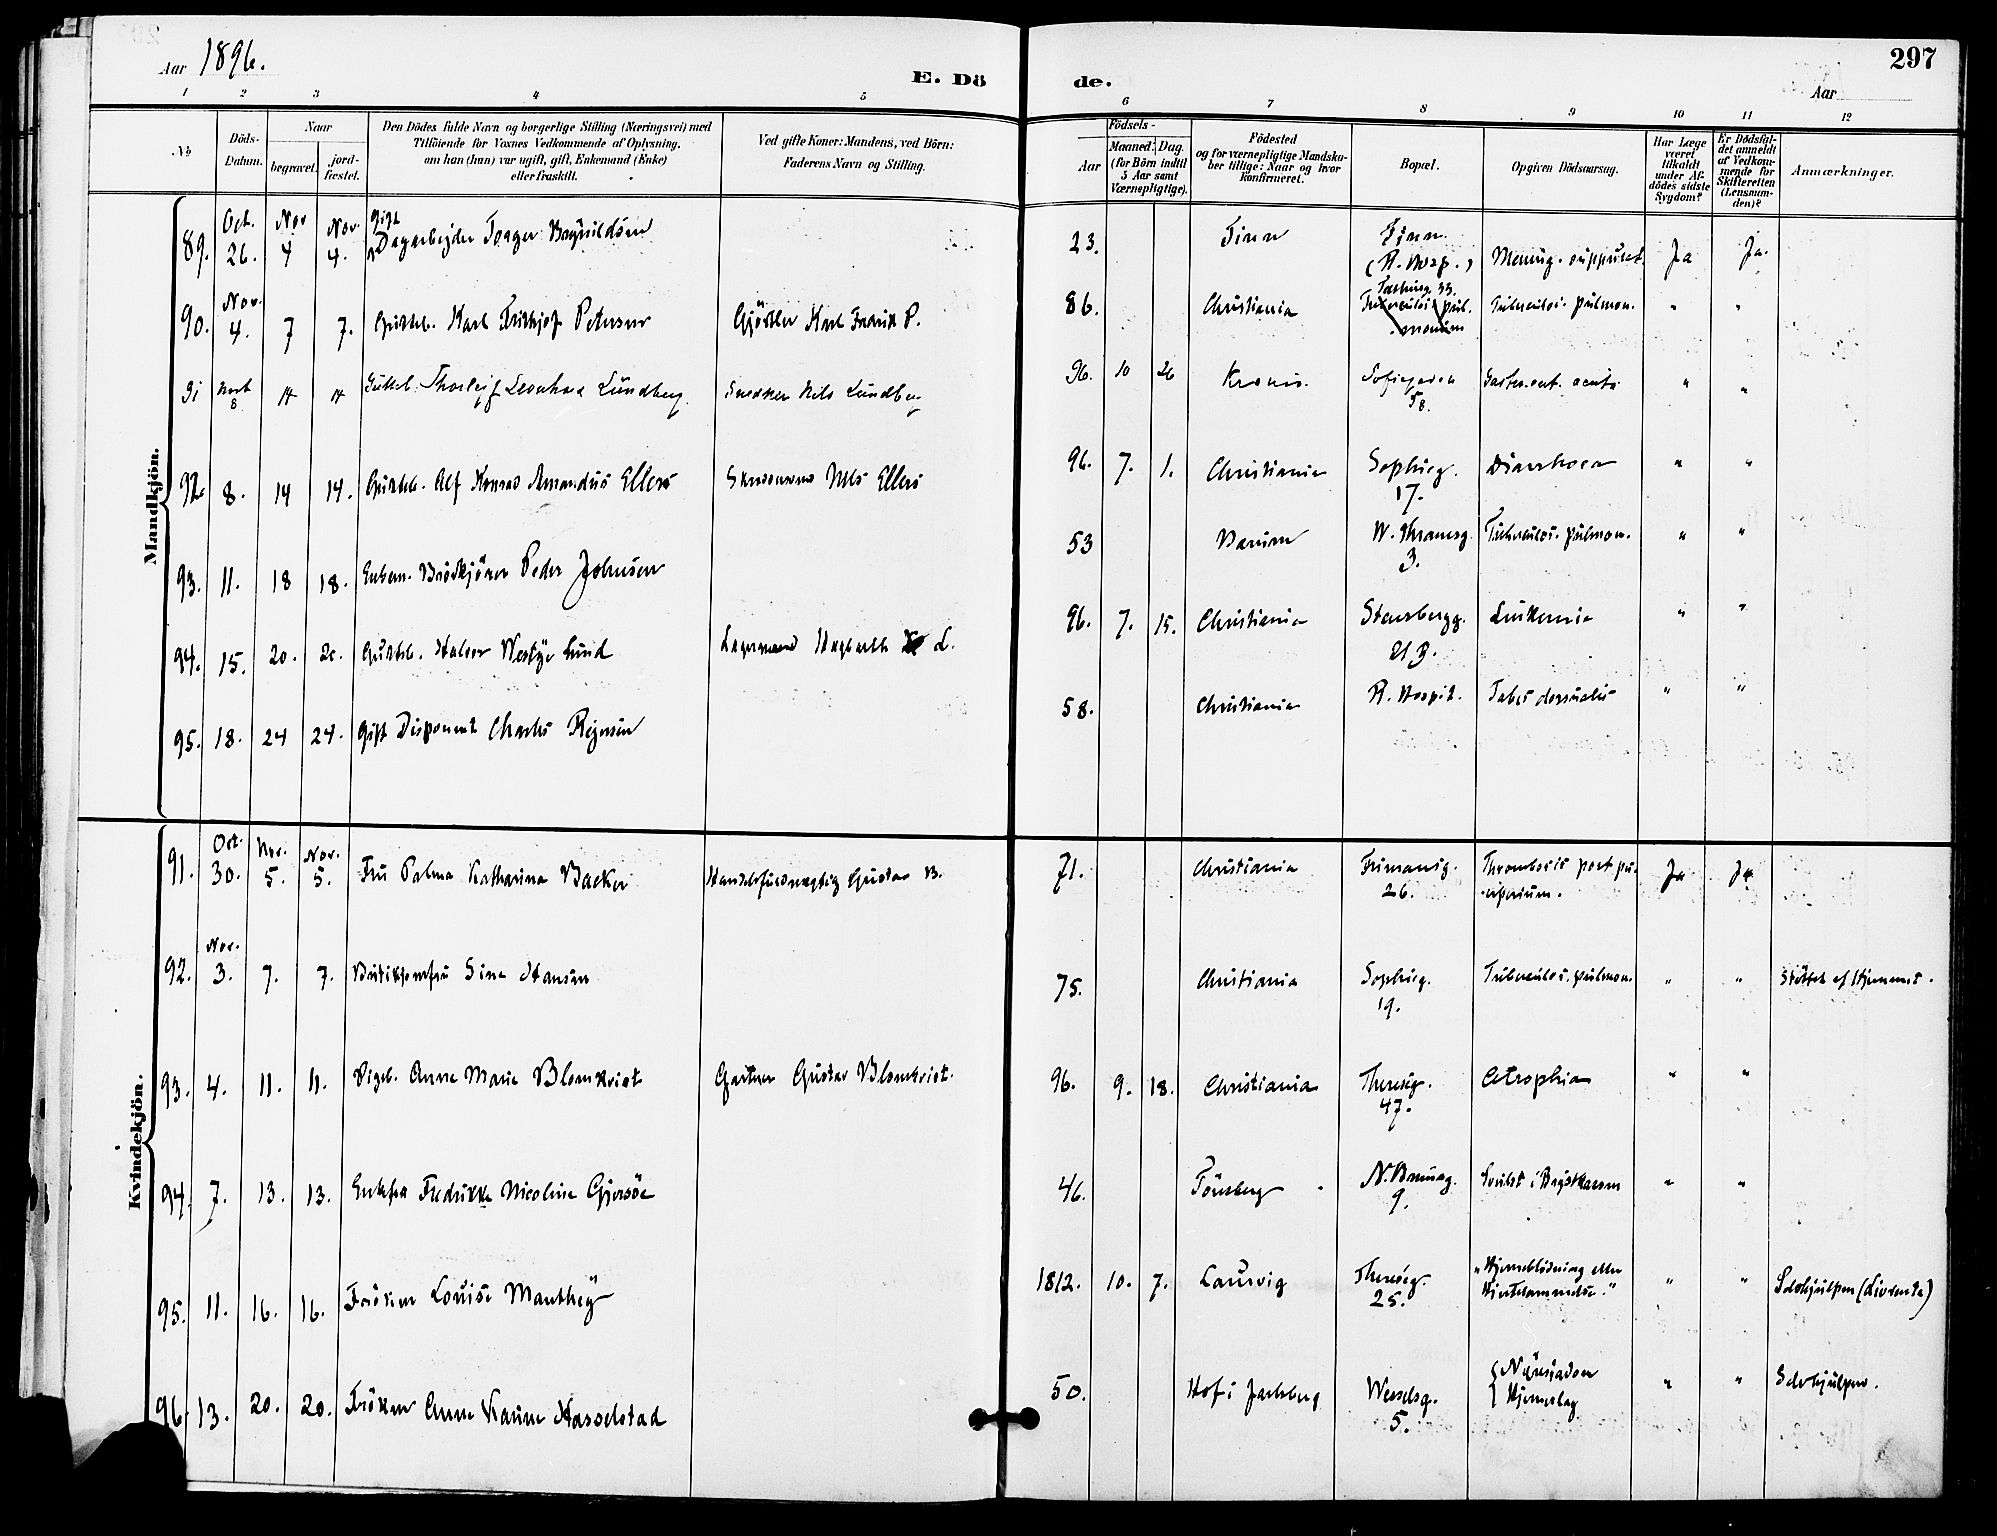 Aar 1896.
E. Döde.
297
Aar
1 2 3 4 5 6 7 8 9 10 11 12
No
Döds-Datum.
Naar
begravet.
jord-fæstet.
Den Dödes fulde Navn og borgerlige Stilling (Næringsvei) med
Tilföiende for Voxnes Vedkommende af Oplysning,
om han (hun) var ugift, gift, Enkemand (Enke)
eller fraskilt.
Ved gifte Koner: Mandens, ved Börn:
Faderens Navn og Stilling.
Födsels-
Aar
Maaned. Dag.
(for Börn indtil
5 Aar samt
Værnepligtige).
Födested
og for værnepligtige Mandska-
ber tillige: Naar og hvor
konfirmeret.
Bopæl.
Opgiven Dödsaarsag.
Har Læge
været
tilkaldt
under Af-
dödes sidste
Sygdom?
Er Dödsfal-
det anmeldt
af Vedkom-
mende for
Skifteretten
(Lensman-
den)?
Anmærkninger.
Mandkjön.
89. Oct. 26. Nov 4 Nov. 4. Gift Dagarbejder Torger 23. Finn. (R. Hosp.) Ja Ja.
90. Nov. 4. 7 7. Gutteb. Karl Frithjof Petersen Gjörtler Karl Fredrik P. 86. Christiania Tuberculos. pulmon. " "
91 8 14 14 Gutteb. Thorleif Leonhard Lundberg Snedker Nils Lundberg 96. 10 26 58. " "
92. 8. 14 14. Gutteb. Alf Konrad Amandus Ellers Nils Ellers 96. 7. 1. Christiania Sophieg. 17. Diarrhoea " "
93. 11. 18 18. Enkem. Peder Johnsen 53 3. Tuberculos. pulmon. " "
94. 15. 20. 20. Gutteb. Lund L. 96. 7. 15. Christiania Stensbergg. 21 B. Leukemia " "
95. 18. 24 24. Gift Disponent Charles 58. Christiania R. Hospit. Tabes dorsualis " "
Kvindekjön.
91. Oct. 30. Nov. 5. Nov. 5. Fru Palma Katharina Backer Gustav B. 71. Christiania 26. Thrombosis post pu-
erperium. Ja Ja
92. Nov. 3. 7. 7. Butikjomfru Sina Hansen 75. Christiania Sophieg. 19. Tuberculos. pulmon. " " Støttet af Hjemmet.
93. 4. 11. 11. Pigeb. Anne Marie Blomkvist Gartner Gustav Blomkvist. 96. 9. 18. Christiania Thereseg. 47. Atrophia " "
94. 7. 13. 13. Enkefru Fredrikke Nicoline Gjersöe 46. Tönsberg 9. Svulst i Brystkassen " "
95. 11. 16. 16. Fröken Louise Manthey 1812. 10. 7. Laurvig Thereseg. 25. "Hjerneblödning eller
Hjertelammelse." " " Selvhjulpen (Livrente)
96. 13. 20. 20. Fröken Anne Karine Hasselstad 50. Hof i Jarlsberg Wesselsg. 5. Hjerneslag " " Selvhjulpen.